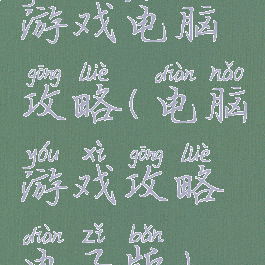 游戏电脑
gōng lüè diàn nǎo
攻略(电脑
yóu xì gōng lüè
游戏攻略
diàn zǐ bǎn
电子版)